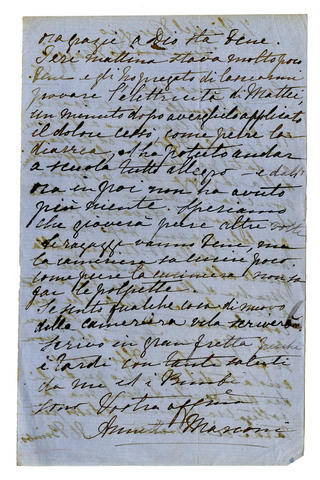 ora grazie a Dio sta bene.
Ieri mattina stava molto poco
bene e gli ho pregato di lasciarmi
provare l'elettricità di Mattei,
un minuto dopo avergliela applicata
il dolore cedò, come pure la
diarrea e ha potuto andar
a scuola tutto allegro – e
ora in poi non ha avuto
più niente. Speriamo
che
i ragazzi vanno bene, ma
la cameriera sa cucire poco
come pure la cuciniera non sa
far le polpette.
Se sento qualche cosa di nuovo
della cameriera ve la scriverò
scrivo in gran fretta
è tardi con tanti saluti
da me e i Bimbi
sono Vostra aff
Annetta Marconi